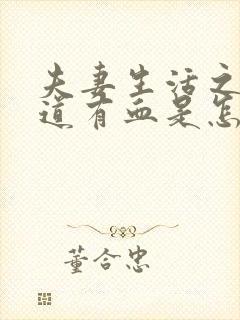 夫妻生活之
道有血是怎
董合忠